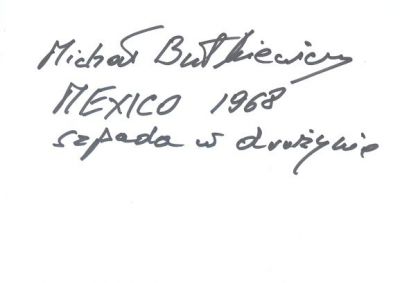 Michał Butkiewicz
MEXICO 1968
szpada w drużynie